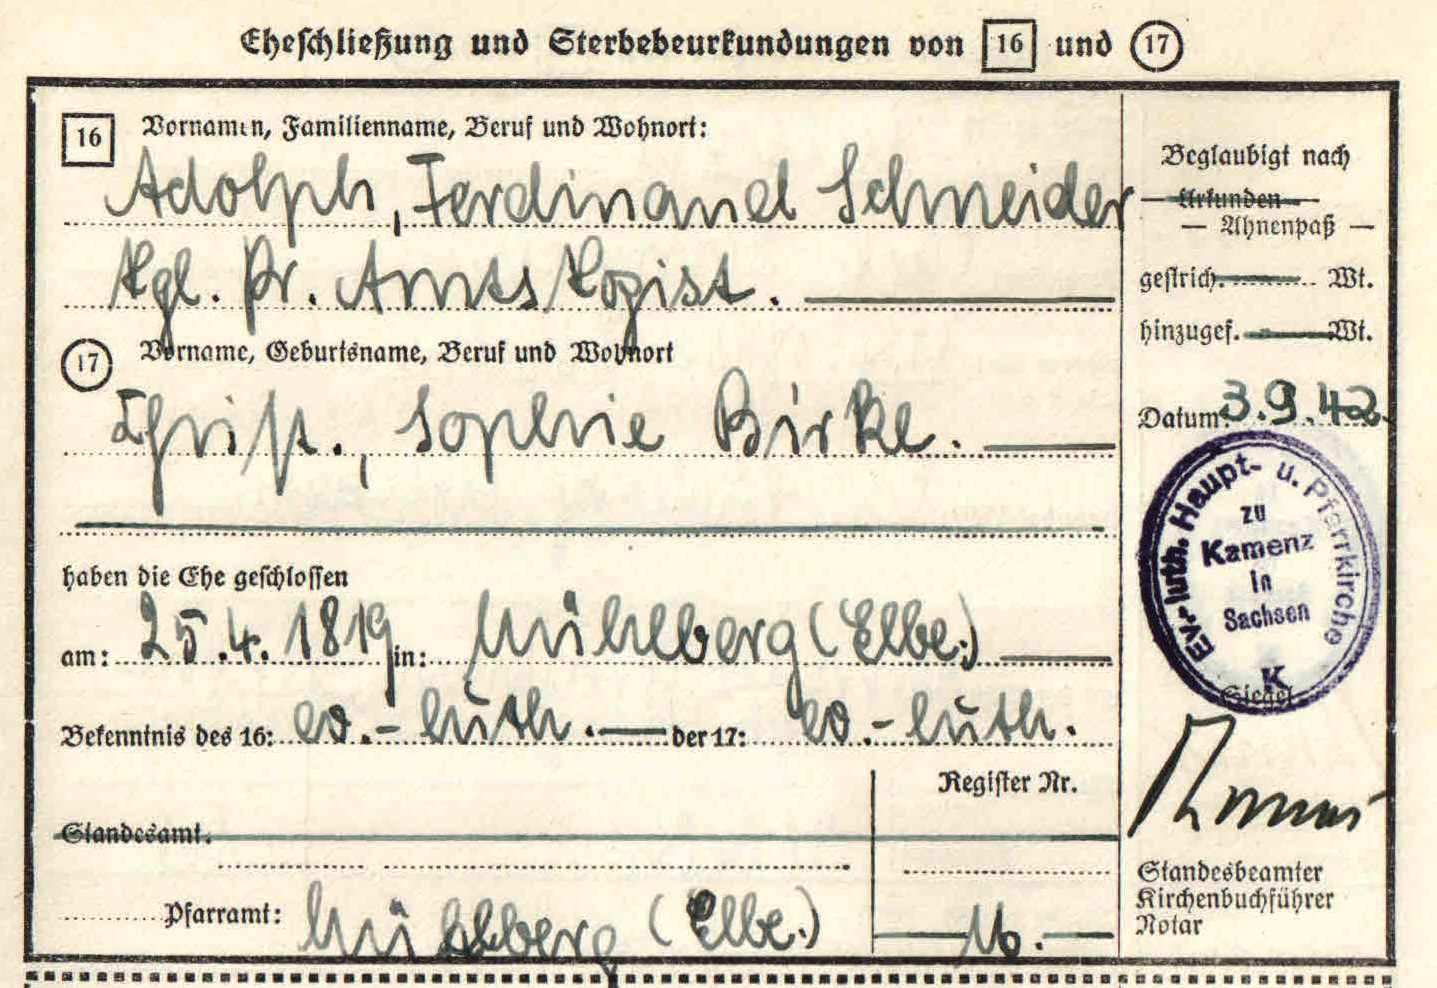 Eheschließung und Sterbebeurkundungen von 16 und 17
16 Vornamen, Familienname, Beruf und Wohnort:
Adolph, Ferdinand Schneider
Kgl. Pr. Amts Kopist.
17 Vorname, Geburtsname, Beruf und Wohnort
Christ., Sophie Birke.
haben die Ehe geschlossen
am: 25.4.1819 in: Mühlberg (Elbe.)
Bekenntnis des 16: ev.-luth. der 17: ev.-luth.
Register Nr.
Standesamt:
Pfarramt: Mühlberg (Elbe.) 16.
Beglaubigt nach
Urkunden
— Ahnenpaß —
gestrich. Wt.
hinzugef. Wt.
Datum: 3.9.42.
Ev.-luth. Haupt- u. Pfarrkirche
zu
Kamenz
in
Sachsen
K
Siegel
Standesbeamter
Kirchenbuchführer
Notar